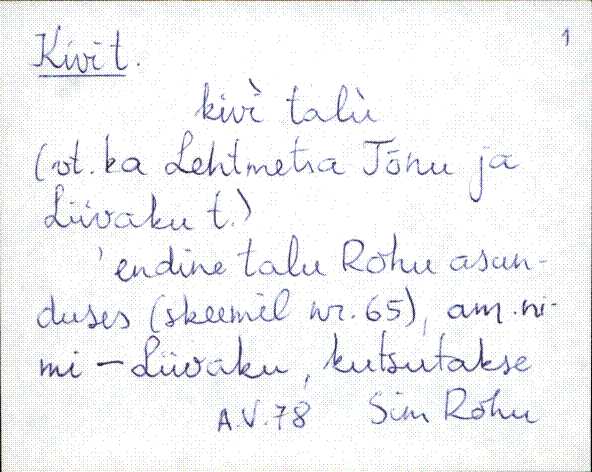 Kivi t.
1
kivì talù
(vt. ka Lehtmetsa Tõnu ja
Liivaku t.)
'endine talu Rohu asun-
duses (skeemil nr. 65), am. ni-
mi – Liivaku, kutsutakse
A.V.78 Sim Rohu